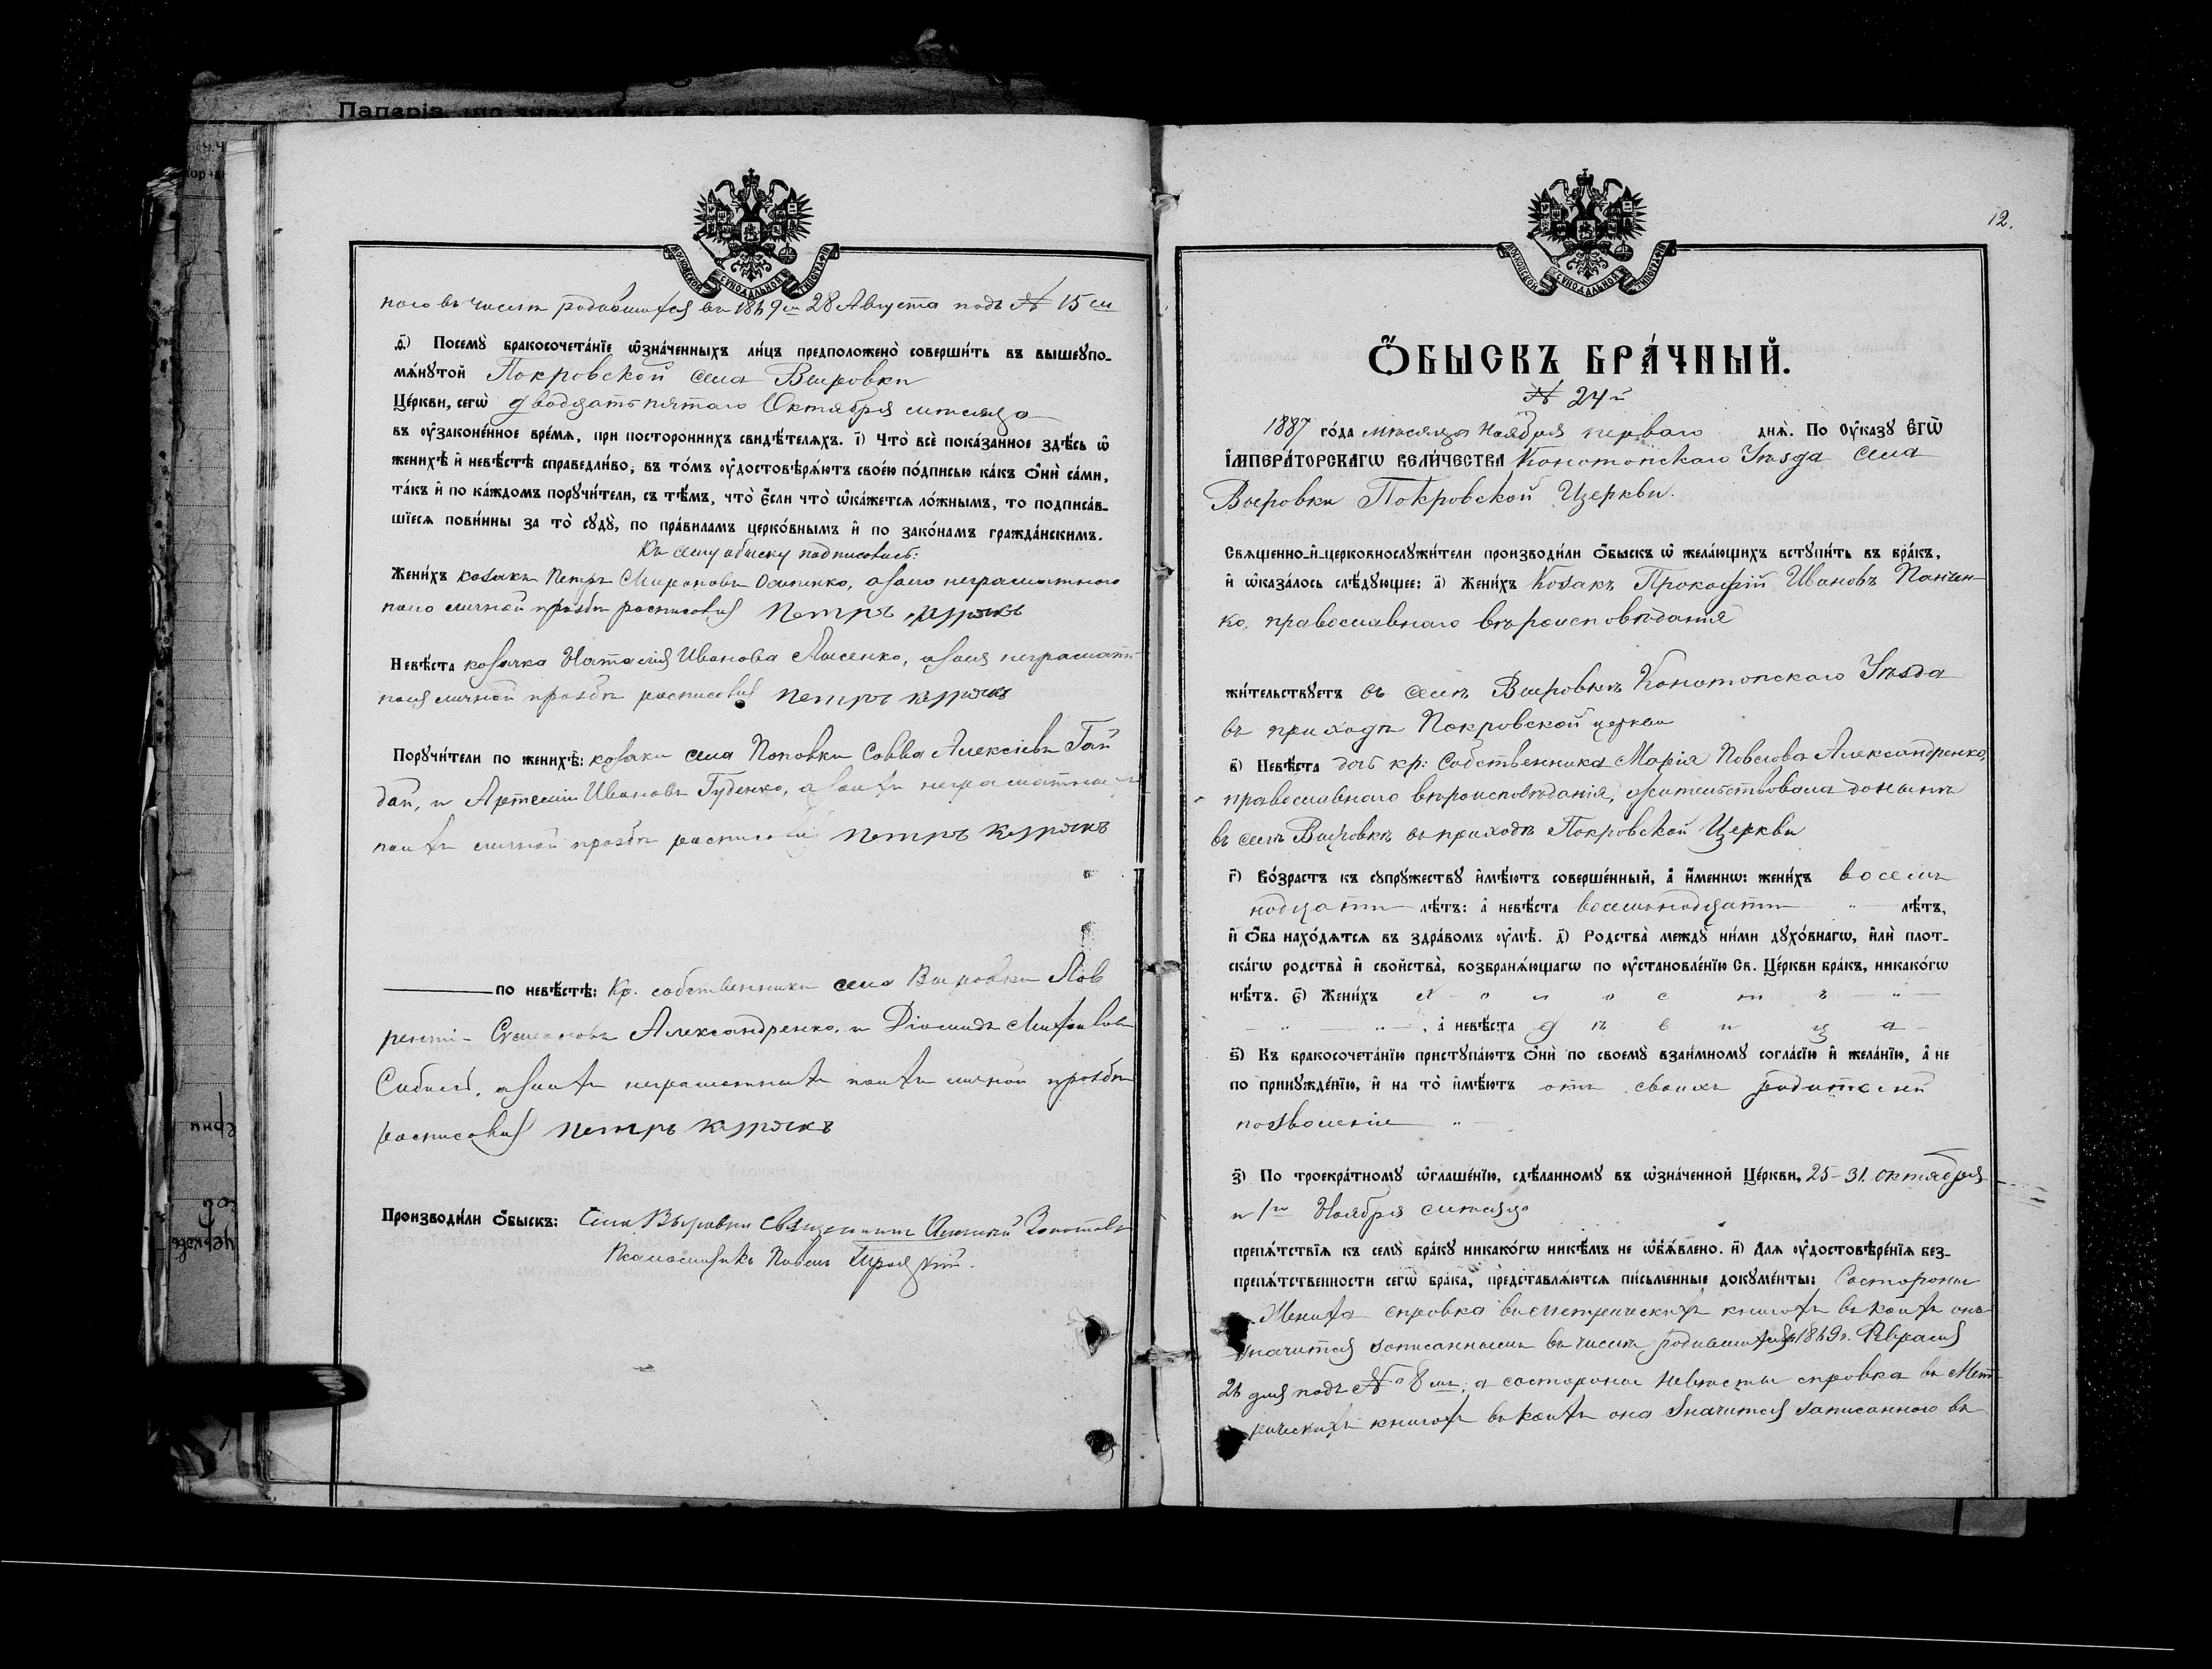 ного въ числѣ родившихся въ 1869 м 28 Августа подъ № 15 м
ѳ҃) Посемꙋ бракосочета́нїе ѡ҆зна́ченныхъ ли́цъ предположено̀ соверши́ть въ вышеꙋпо-
мѧ́нꙋтой Покровской села Выровки
Це́ркви, сегѡ̀ двадцать пятаго Октября мѣсяца
въ ᲂу҆законе́нное вре́мѧ, при посторо́ннихъ свидѣ́телѧхъ. і҃) Что̀ всѐ пока́занное здѣ́сь ѡ҆
женихѣ̀ и҆ невѣ́стѣ справедли́во, въ то́мъ ᲂу҆достовѣрѧ́ютъ свое́ю по́дписью ка́къ ѻ҆нѝ са́ми,
та́къ и҆ по ка́ждомъ порꙋчи́тели, съ тѣ́мъ, что̀ є҆́сли что̀ ѡ҆ка́жетсѧ ло́жнымъ, то подписа́в-
шїесѧ пови́нны за то̀ сꙋдꙋ̀, по пра́виламъ церко́внымъ и҆ по зако́намъ гражда́нскимъ.
Къ сему обыску подписались:
Жени́хъ козакъ Петръ Мироновъ Осипенко, а за него неграмотнаго
по его личной прозбѣ росписовался Петръ Курякъ
Невѣ́ста козачка Наталія Иванова Лысенко, а за нея неграмот-
ную личной прозбѣ росписовался Петръ Курякъ
Порꙋчи́тели по женихѣ̀: козаки села Поповки Савва Алексіевъ Гай
дай, и Артемій Ивановъ Гуденко, а за нихъ неграмотныхъ
по ихъ личной прозбѣ росписовался Петръ Курякъ
по невѣ́стѣ: Кр. собственники села Выровки Лав
рентій Семеновъ Александренко, и Діомидъ
а за нихъ неграмотныхъ по ихъ личной прозбѣ
росписовался Петръ Курякъ
Производи́ли ѻ҆́быскъ: Села Выровки священникъ
Псаломщикъ Павелъ
12.
Ѻ҆́БЫСКЪ БРА́ЧНЫЙ.
№ 24й
1887 го́да мѣсяца Ноября перваго днѧ̀. По ᲂу҆ка́зꙋ Є҆ГѠ̀
І҆МПЕРА́ТОРСКАГѠ ВЕЛИ́ЧЕСТВА Конотопскаго Уѣзда села
Выровки Покровской Церкви.
Свѧщенно-и҆-церковнослꙋжи́тели производи́ли ѻ҆́быскъ ѡ҆ жела́ющихъ встꙋпи́ть въ бра́къ,
и҆ ѡ҆каза́лось слѣ́дꙋющее: а҃) Жени́хъ Козакъ Прокофій Ивановъ Панчен-
ко, православнаго вѣроисповѣданія
жи́тельствꙋетъ въ селѣ Выровкѣ Конотопскаго Уѣзда
въ приходѣ Покровской церкви
в҃) Невѣ́ста дочь кр: Собственника Марія Павлова Александренко,
православнаго вѣроисповѣданія, жительствовала донынѣ
въ селѣ Выровкѣ въ приходѣ Покровской Церкви
г҃) Во́зрастъ къ сꙋпрꙋ́жествꙋ и҆мѣ́ютъ соверше́нный, а҆ и҆́меннѡ: жени́хъ восем
надцати лѣ́тъ: а҆ невѣ́ста восемнадцати лѣ́тъ,
и҆ ѻ҆́ба нахо́дѧтсѧ въ здра́вомъ ᲂу҆мѣ̀. д҃) Родства̀ междꙋ̀ ни́ми дꙋхо́внагѡ, и҆лѝ плот-
ска́гѡ родства̀ и҆ сво́йства̀, возбранѧ́ющагѡ по ᲂу҆становле́нїю Св. Це́ркви бра́къ, никако́гѡ
нѣ́тъ. є҃) Жени́хъ холостъ
, а҆ невѣ́ста дѣвица
ѕ҃) Къ бракосочета́нїю пристꙋпа́ютъ ѻ҆нѝ по своемꙋ̀ взаи́мномꙋ согла́сїю и҆ жела́нїю, а҆ не
по принꙋжде́нїю, и҆ на то̀ и҆мѣ́ютъ отъ своихъ родителей
позволеніе
з҃) По троекра́тномꙋ ѡ҆глаше́нїю, сдѣ́ланномꙋ въ ѡ҆зна́ченной Це́ркви, 25-31. октября
и 1го Ноября мѣсяца
препѧ́тствїѧ къ семꙋ̀ бра́кꙋ никако́гѡ никѣ́мъ не ѡ҆б̾ѧ́влено. и҃) Длѧ ᲂу҆достовѣре́нїѧ без-
препѧ́тственности сегѡ̀ бра́ка, представлѧ́ютсѧ пи́сьменные докꙋме́нты: Состороны
Жениха справка въ метрическихъ книгахъ въ коихъ онъ
значится записаннымъ въ числѣ родившихся 1869 г. Февраля
26 дня подъ № 8 мъ, а состороны невѣсты справка въ Мет-
рическихъ книгахъ въ коихъ она значится записанною въ